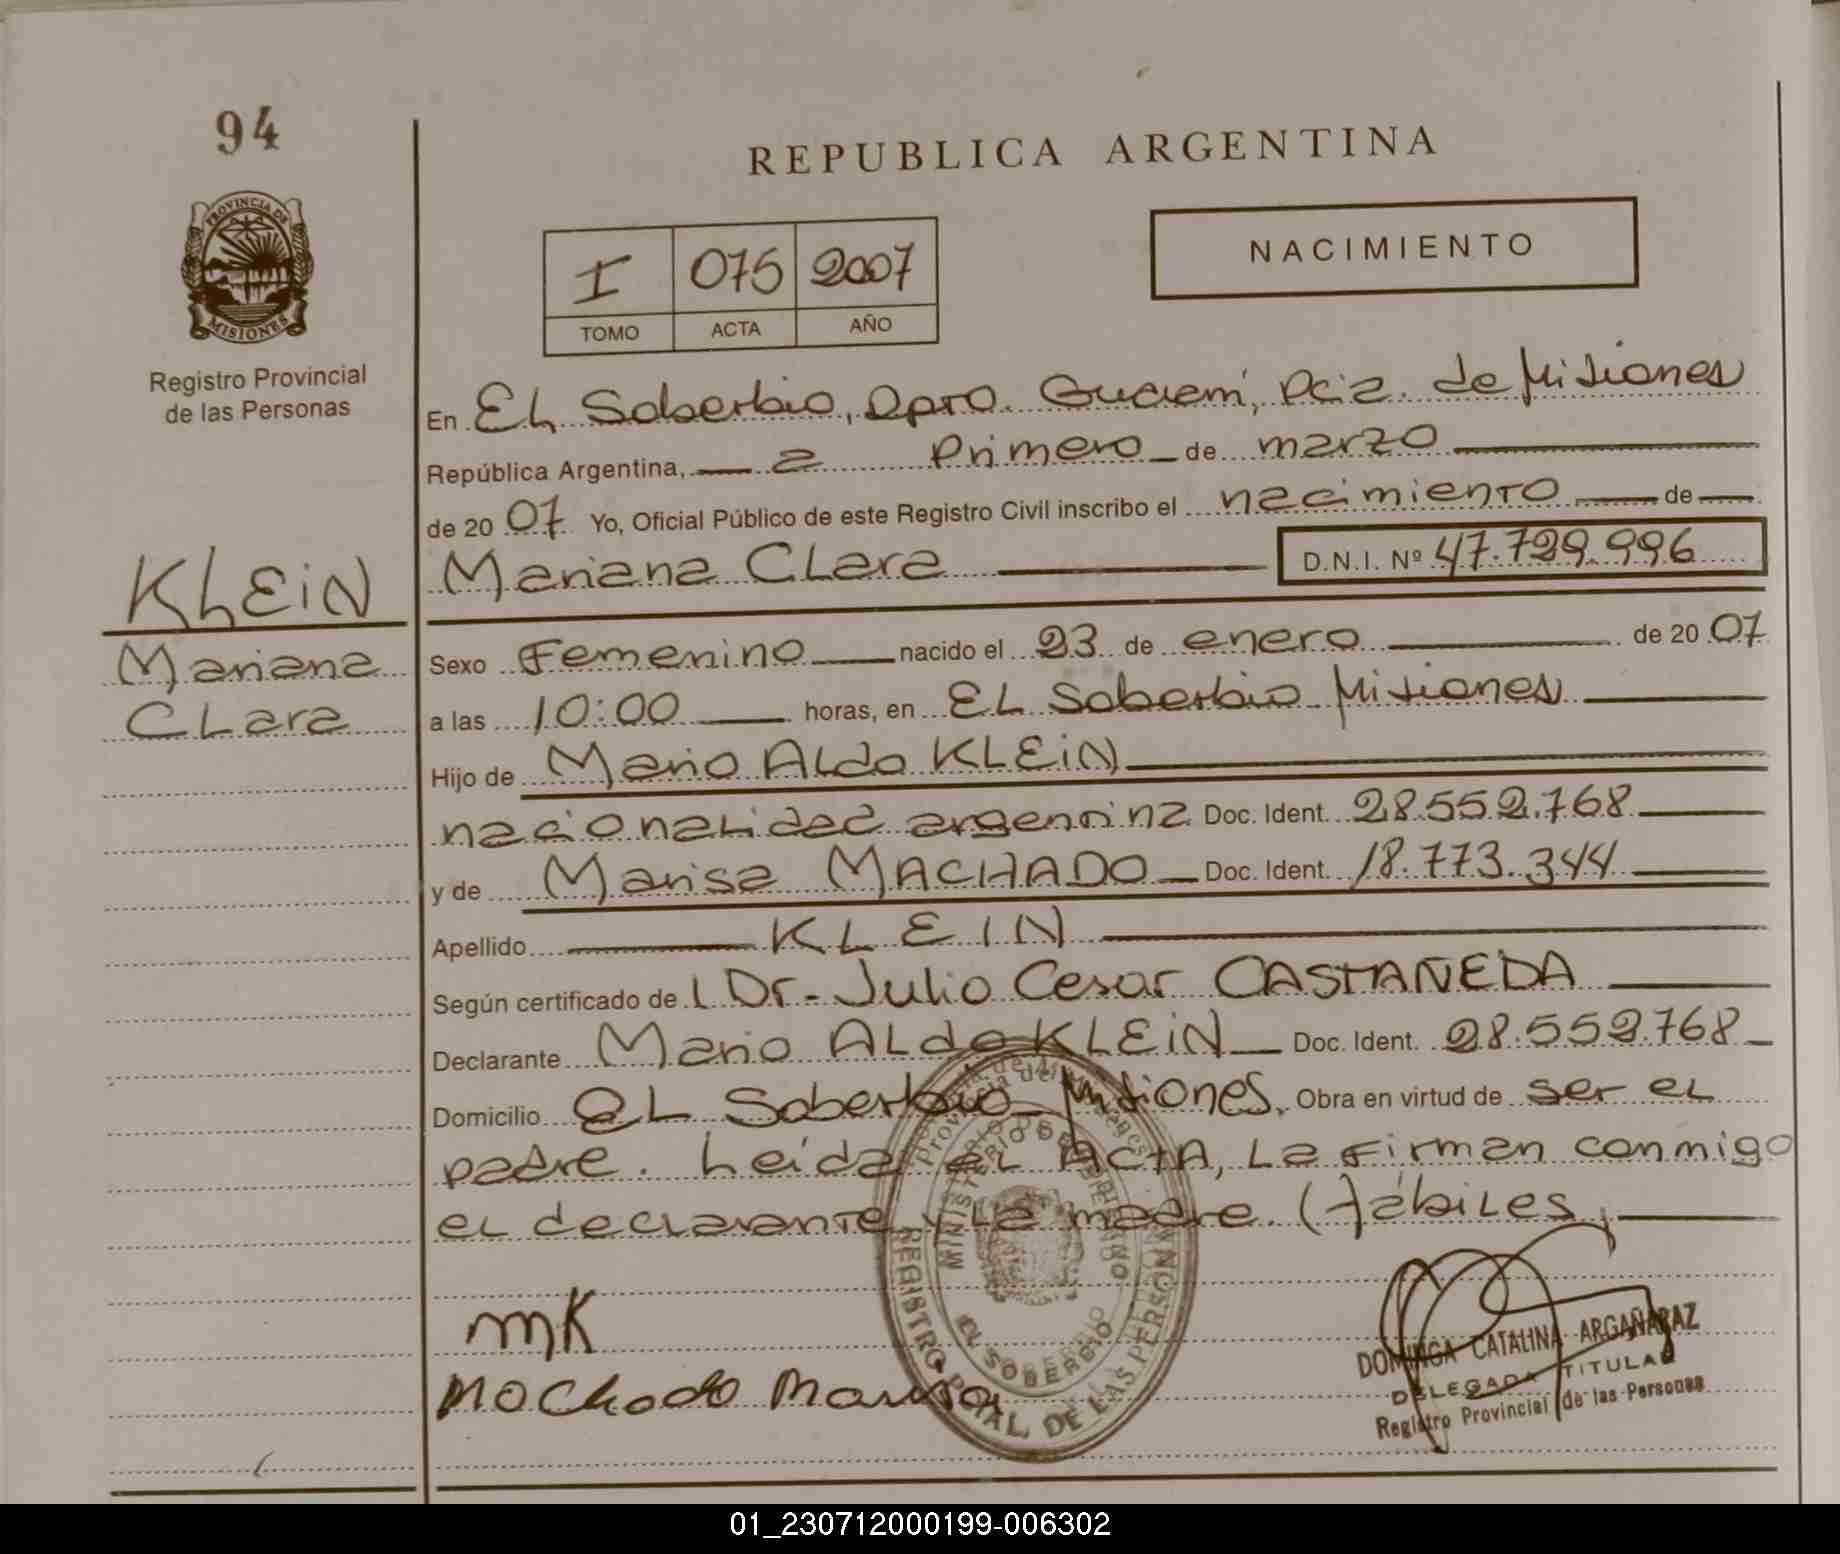 94
REPUBLICA ARGENTINA
PROVINCIA DE
MISIONES
Registro Provincial
de las Personas
I 075 2007
TOMO ACTA AÑO
NACIMIENTO
En EL Soberbio, Dpto. Guaraní, Pcia. de Misiones
República Argentina, a Primero de marzo
de 2007 Yo, Oficial Público de este Registro Civil inscribo el nacimiento de
Mariana CLara D.N.I. Nº 47.729.996
KLEiN
Mariana
CLara
Sexo Femenino nacido el 23 de enero de 2007
a las 10:00 horas, en EL Soberbio Misiones
Hijo de Mario ALdo KLEiN
nacionaLidad argentina Doc. Ident. 28.552.768
y de Marisa MACHADO Doc. Ident. 18.773.344
Apellido KLEIN
Según certificado de L Dr. Julio Cesar CASTAÑEDA
Declarante Mario ALdo KLEiN Doc. Ident. 28.552.768
Domicilio EL Soberbio Misiones. Obra en virtud de ser eL
padre. Leída eL ACtA, La Firman conmigo
eL decLarante y La madre. Hábiles
mK
Machado Marisa
MINISTERIO DE GOBIERNO
REGISTRO PROVINCIAL DE LAS PERSONAS
EL SOBERBIO
DOMINGA CATALINA ARGAÑARAZ
DELEGADA TITULAR
Registro Provincial de las Personas
01_230712000199-006302